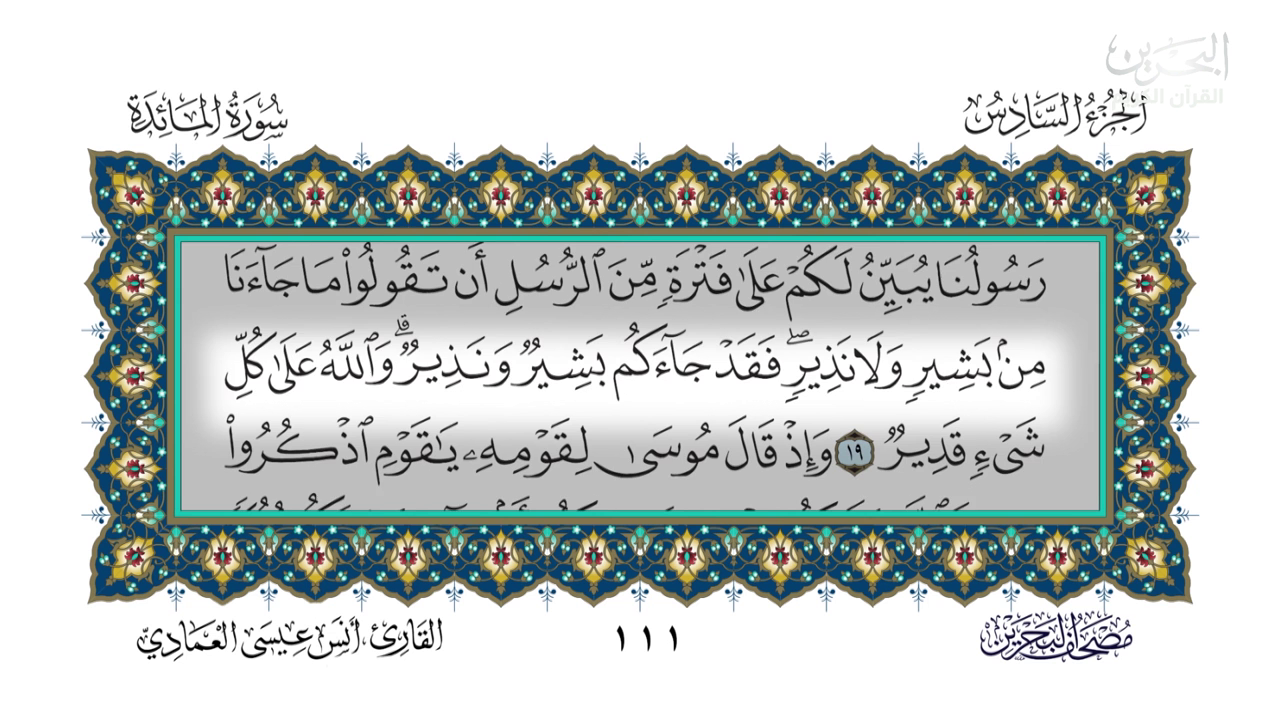 البحرين
القرآن الكريم
الجزء السادس
سورة المائدة
رَسُولُنَا يُبَيِّنُ لَكُمْ عَلَىٰ فَتْرَةٍ مِّنَ ٱلرُّسُلِ أَن تَقُولُوا۟ مَا جَآءَنَا
مِنۢ بَشِيرٍ وَلَا نَذِيرٍ ۖ فَقَدْ جَآءَكُم بَشِيرٌ وَنَذِيرٌ ۗ وَٱللَّهُ عَلَىٰ كُلِّ
شَىْءٍ قَدِيرٌ ١٩ وَإِذْ قَالَ مُوسَىٰ لِقَوْمِهِۦ يَـٰقَوْمِ ٱذْكُرُوا۟
مصحف البحرين
١١١
القارئ، أنس عيسى العمادي